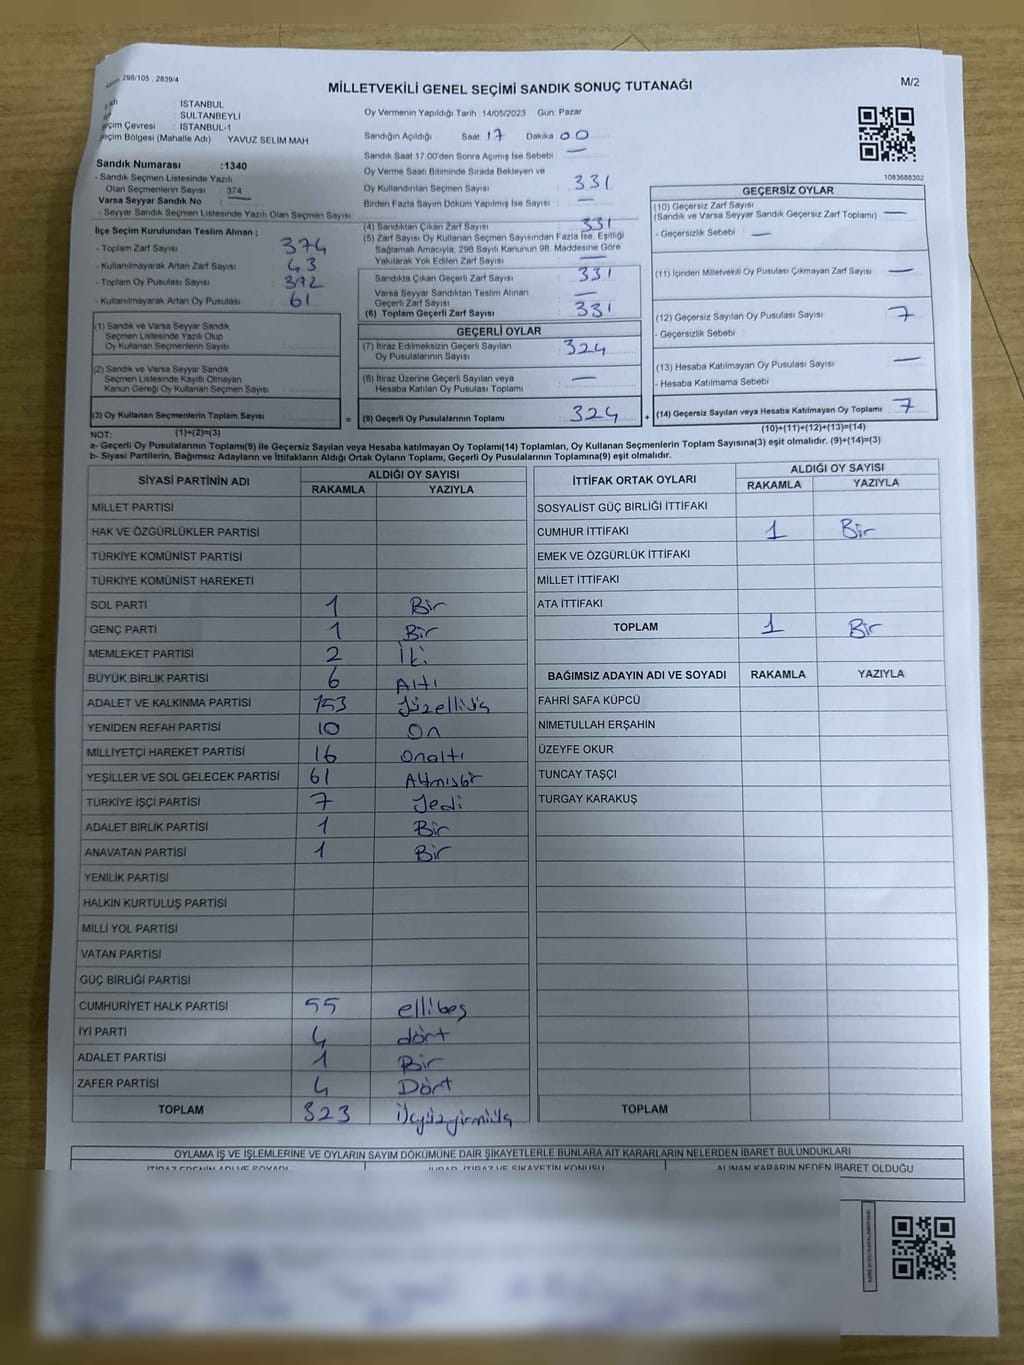 298/105 . 2839/4
MİLLETVEKİLİ GENEL SEÇİMİ SANDIK SONUÇ TUTANAĞI
M/2
İSTANBUL
SULTANBEYLİ
Seçim Çevresi : İSTANBUL-1
Seçim Bölgesi (Mahalle Adı) : YAVUZ SELİM MAH
Sandık Numarası :1340
- Sandık Seçmen Listesinde Yazılı
Olan Seçmenlerin Sayısı : 374
Varsa Seyyar Sandık No : —
- Seyyar Sandık Seçmen Listesinde Yazılı Olan Seçmen Sayısı
İlçe Seçim Kurulundan Teslim Alınan ;
- Toplam Zarf Sayısı : 374
- Kullanılmayarak Artan Zarf Sayısı : 43
- Toplam Oy Pusulası Sayısı : 392
- Kullanılmayarak Artan Oy Pusulası : 61
(1) Sandık ve Varsa Seyyar Sandık
Seçmen Listesinde Yazılı Olup
Oy Kullanan Seçmenlerin Sayısı
(2) Sandık ve Varsa Seyyar Sandık
Seçmen Listesinde Kayıtlı Olmayan
Kanun Gereği Oy Kullanan Seçmen Sayısı :
(3) Oy Kullanan Seçmenlerin Toplam Sayısı
(1)+(2)=(3)
Oy Vermenin Yapıldığı Tarih : 14/05/2023 Gün: Pazar
Sandığın Açıldığı Saat 17 Dakika 00
Sandık Saat 17:00'den Sonra Açılmış İse Sebebi : —
Oy Verme Saati Bitiminde Sırada Bekleyen ve
Oy Kullandırılan Seçmen Sayısı : 331
Birden Fazla Sayım Döküm Yapılmış İse Sayısı : —
(4) Sandıktan Çıkan Zarf Sayısı : 331
(5) Zarf Sayısı Oy Kullanan Seçmen Sayısından Fazla İse, Eşitliği
Sağlamak Amacıyla, 298 Sayılı Kanunun 98. Maddesine Göre
Yakılarak Yok Edilen Zarf Sayısı : —
Sandıkta Çıkan Geçerli Zarf Sayısı : 331
Varsa Seyyar Sandıktan Teslim Alınan
Geçerli Zarf Sayısı : —
(6) Toplam Geçerli Zarf Sayısı : 331
GEÇERLİ OYLAR
(7) İtiraz Edilmeksizin Geçerli Sayılan
Oy Pusulalarının Sayısı : 324
(8) İtiraz Üzerine Geçerli Sayılan veya
Hesaba Katılan Oy Pusulası Toplamı : —
= (9) Geçerli Oy Pusulalarının Toplamı : 324 +
1083688302
GEÇERSİZ OYLAR
(10) Geçersiz Zarf Sayısı
(Sandık ve Varsa Seyyar Sandık Geçersiz Zarf Toplamı) : —
- Geçersizlik Sebebi : —
(11) İçinden Milletvekili Oy Pusulası Çıkmayan Zarf Sayısı : —
(12) Geçersiz Sayılan Oy Pusulası Sayısı : 7
- Geçersizlik Sebebi :
(13) Hesaba Katılmayan Oy Pusulası Sayısı : —
- Hesaba Katılmama Sebebi :
(14) Geçersiz Sayılan veya Hesaba Katılmayan Oy Toplamı : 7
(10)+(11)+(12)+(13)=(14)
NOT:
a- Geçerli Oy Pusulalarının Toplamı(9) ile Geçersiz Sayılan veya Hesaba katılmayan Oy Toplamı(14) Toplamları, Oy Kullanan Seçmenlerin Toplam Sayısına(3) eşit olmalıdır. (9)+(14)=(3)
b- Siyasi Partilerin, Bağımsız Adayların ve İttifakların Aldığı Ortak Oyların Toplamı, Geçerli Oy Pusulalarının Toplamına(9) eşit olmalıdır.
SİYASİ PARTİNİN ADI ALDIĞI OY SAYISI
RAKAMLA YAZIYLA
MİLLET PARTİSİ
HAK VE ÖZGÜRLÜKLER PARTİSİ
TÜRKİYE KOMÜNİST PARTİSİ
TÜRKİYE KOMÜNİST HAREKETİ
SOL PARTİ 1 Bir
GENÇ PARTİ 1 Bir
MEMLEKET PARTİSİ 2 İki
BÜYÜK BİRLİK PARTİSİ 6 Altı
ADALET VE KALKINMA PARTİSİ 153 Yüzelliüç
YENİDEN REFAH PARTİSİ 10 On
MİLLİYETÇİ HAREKET PARTİSİ 16 Onaltı
YEŞİLLER VE SOL GELECEK PARTİSİ 61 Altmışbir
TÜRKİYE İŞÇİ PARTİSİ 7 Yedi
ADALET BİRLİK PARTİSİ 1 Bir
ANAVATAN PARTİSİ 1 Bir
YENİLİK PARTİSİ
HALKIN KURTULUŞ PARTİSİ
MİLLİ YOL PARTİSİ
VATAN PARTİSİ
GÜÇ BİRLİĞİ PARTİSİ
CUMHURİYET HALK PARTİSİ 55 ellibeş
İYİ PARTİ 4 dört
ADALET PARTİSİ 1 Bir
ZAFER PARTİSİ 4 Dört
TOPLAM 323 üçyüzyirmiüç
İTTİFAK ORTAK OYLARI ALDIĞI OY SAYISI
RAKAMLA YAZIYLA
SOSYALİST GÜÇ BİRLİĞİ İTTİFAKI
CUMHUR İTTİFAKI 1 Bir
EMEK VE ÖZGÜRLÜK İTTİFAKI
MİLLET İTTİFAKI
ATA İTTİFAKI
TOPLAM 1 Bir
BAĞIMSIZ ADAYIN ADI VE SOYADI RAKAMLA YAZIYLA
FAHRİ SAFA KÜPCÜ
NİMETULLAH ERŞAHİN
ÜZEYFE OKUR
TUNCAY TAŞÇI
TURGAY KARAKUŞ
TOPLAM
OYLAMA İŞ VE İŞLEMLERİNE VE OYLARIN SAYIM DÖKÜMÜNE DAİR ŞİKAYETLERLE BUNLARA AİT KARARLARIN NELERDEN İBARET BULUNDUKLARI
İTİRAZ EDENİN ADI VE SOYADI İHBAR, İTİRAZ VE ŞİKAYETİN KONUSU ALINAN KARARIN NEDEN İBARET OLDUĞU